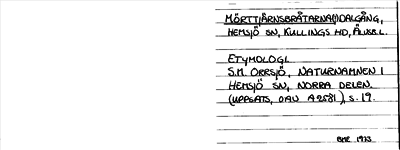 MÖRTTJÄRNSBRÅTARNA(!)DALGÅNG,
HEMSJÖ SN, KULLINGS HD, ÄLVSB.L.
ETYMOLOGI.
S.M. ORRSJÖ, NATURNAMNEN I
HEMSJÖ SN, NORRA DELEN.
(UPPSATS, OAU A2581), s. 19.
1973